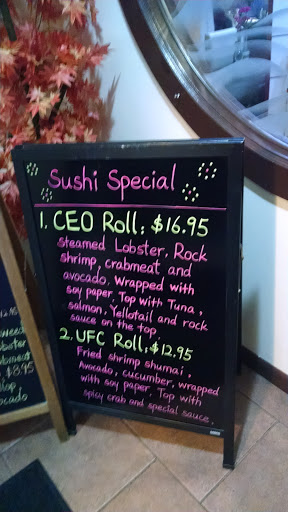 Sushi Special
1. CEO Roll: $16.95
steamed Lobster, Rock
shrimp, crabmeat and
avocado. Wrapped with
soy paper. Top with Tuna,
salmon, Yellotail and rock
sauce on the top
2. UFC Roll: $12.95
Fried shrimp shumai,
Avocado, cucumber, wrapped
with soy paper. Top with
spicy crab and special sauce.
$8.95